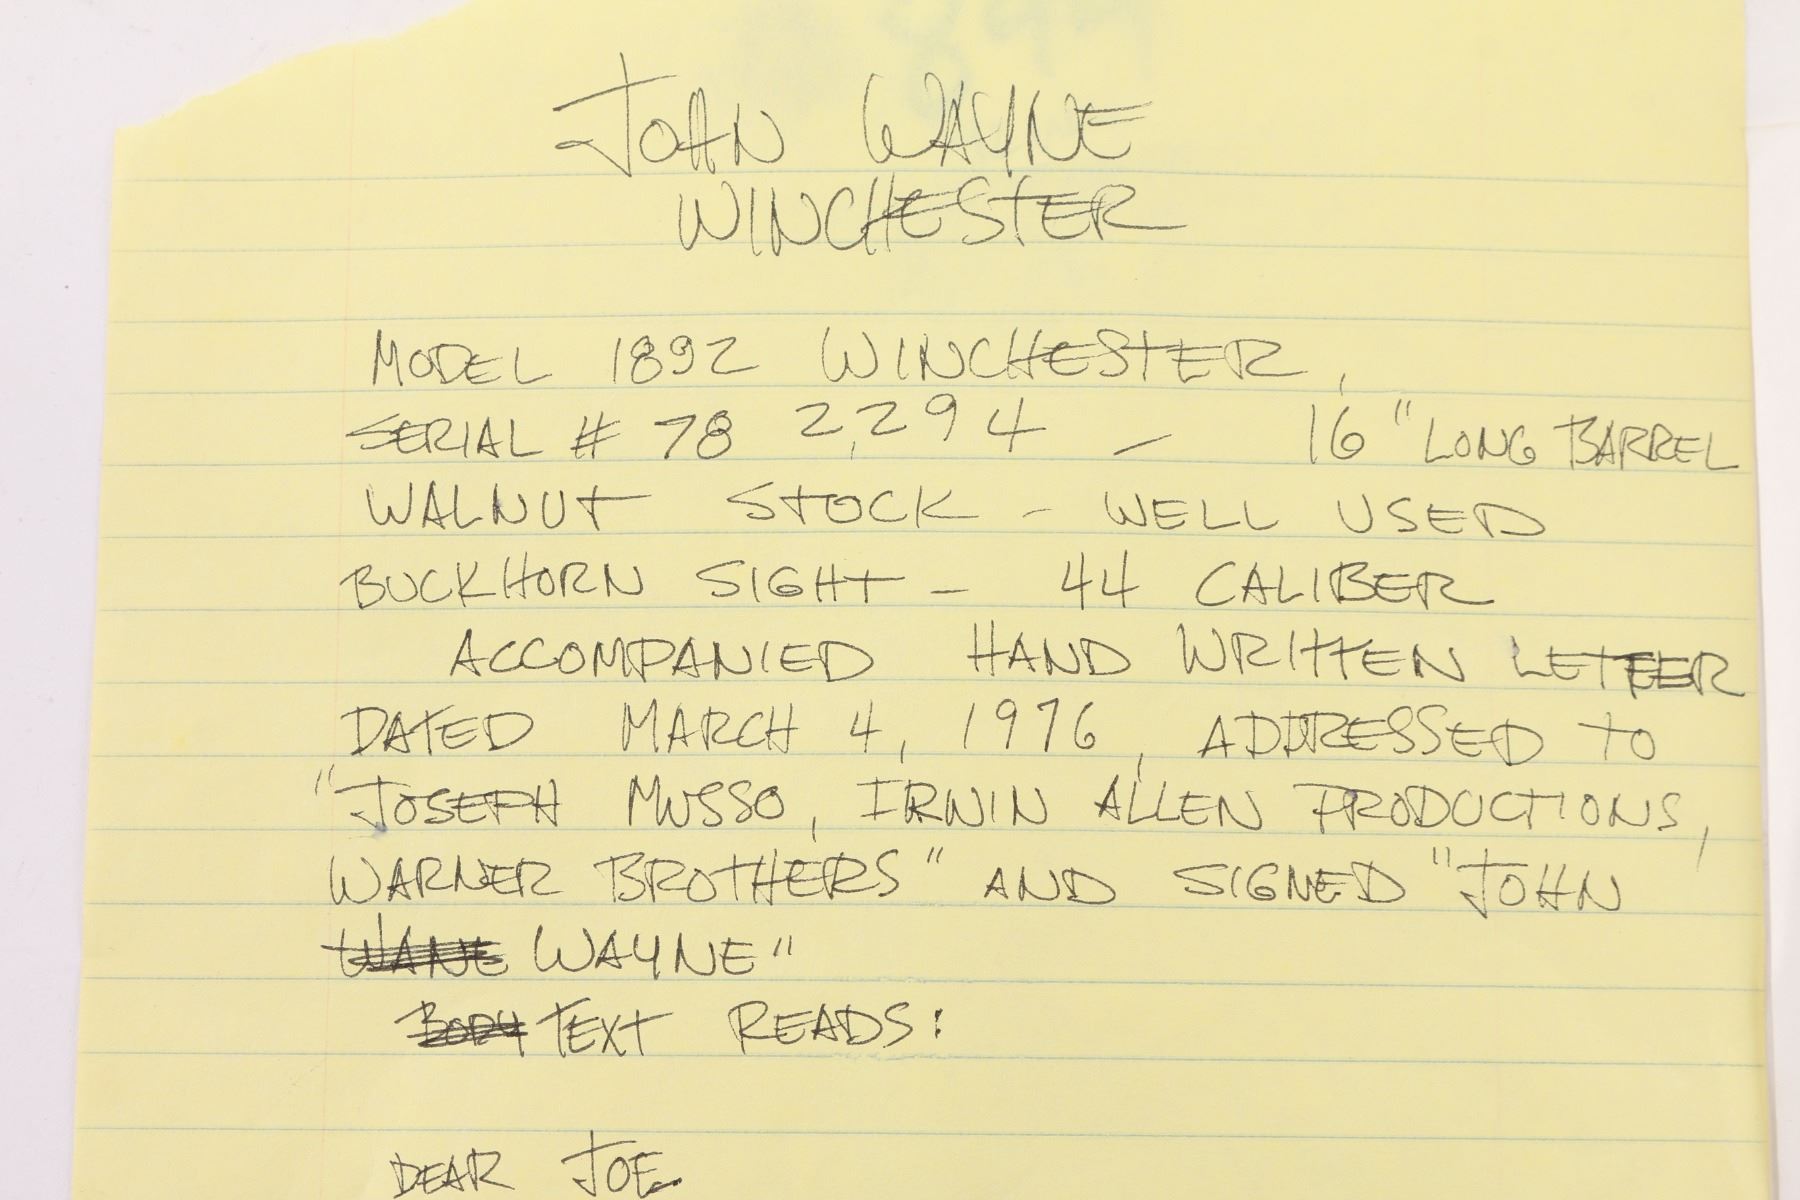 JOHN WAYNE
WINCHESTER
MODEL 1892 WINCHESTER,
SERIAL # 78 2,294 - 16" LONG BARREL
WALNUT STOCK - WELL USED
BUCKHORN SIGHT - 44 CALIBER
ACCOMPANIED HAND WRITTEN LETTER
DATED MARCH 4, 1976, ADDRESSED TO
"JOSEPH MUSSO, IRWIN ALLEN PRODUCTIONS,
WARNER BROTHERS" AND SIGNED "JOHN
WANE WAYNE"
BODY TEXT READS:
DEAR JOE